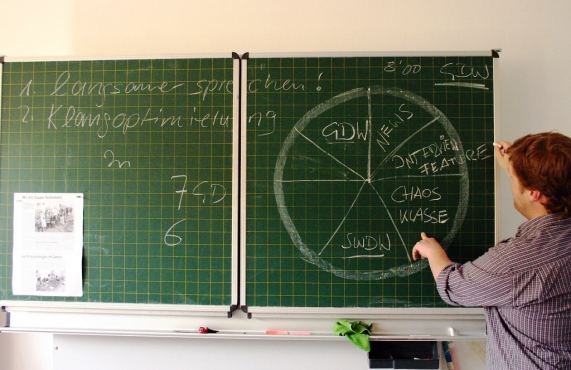 1. langsamer sprechen!
2. Klangoptimierung
7 GD
6
8°00 GDW
GDW
NEWS
INTERVIEW
FEATURE
CHAOS
KLASSE
SWDN